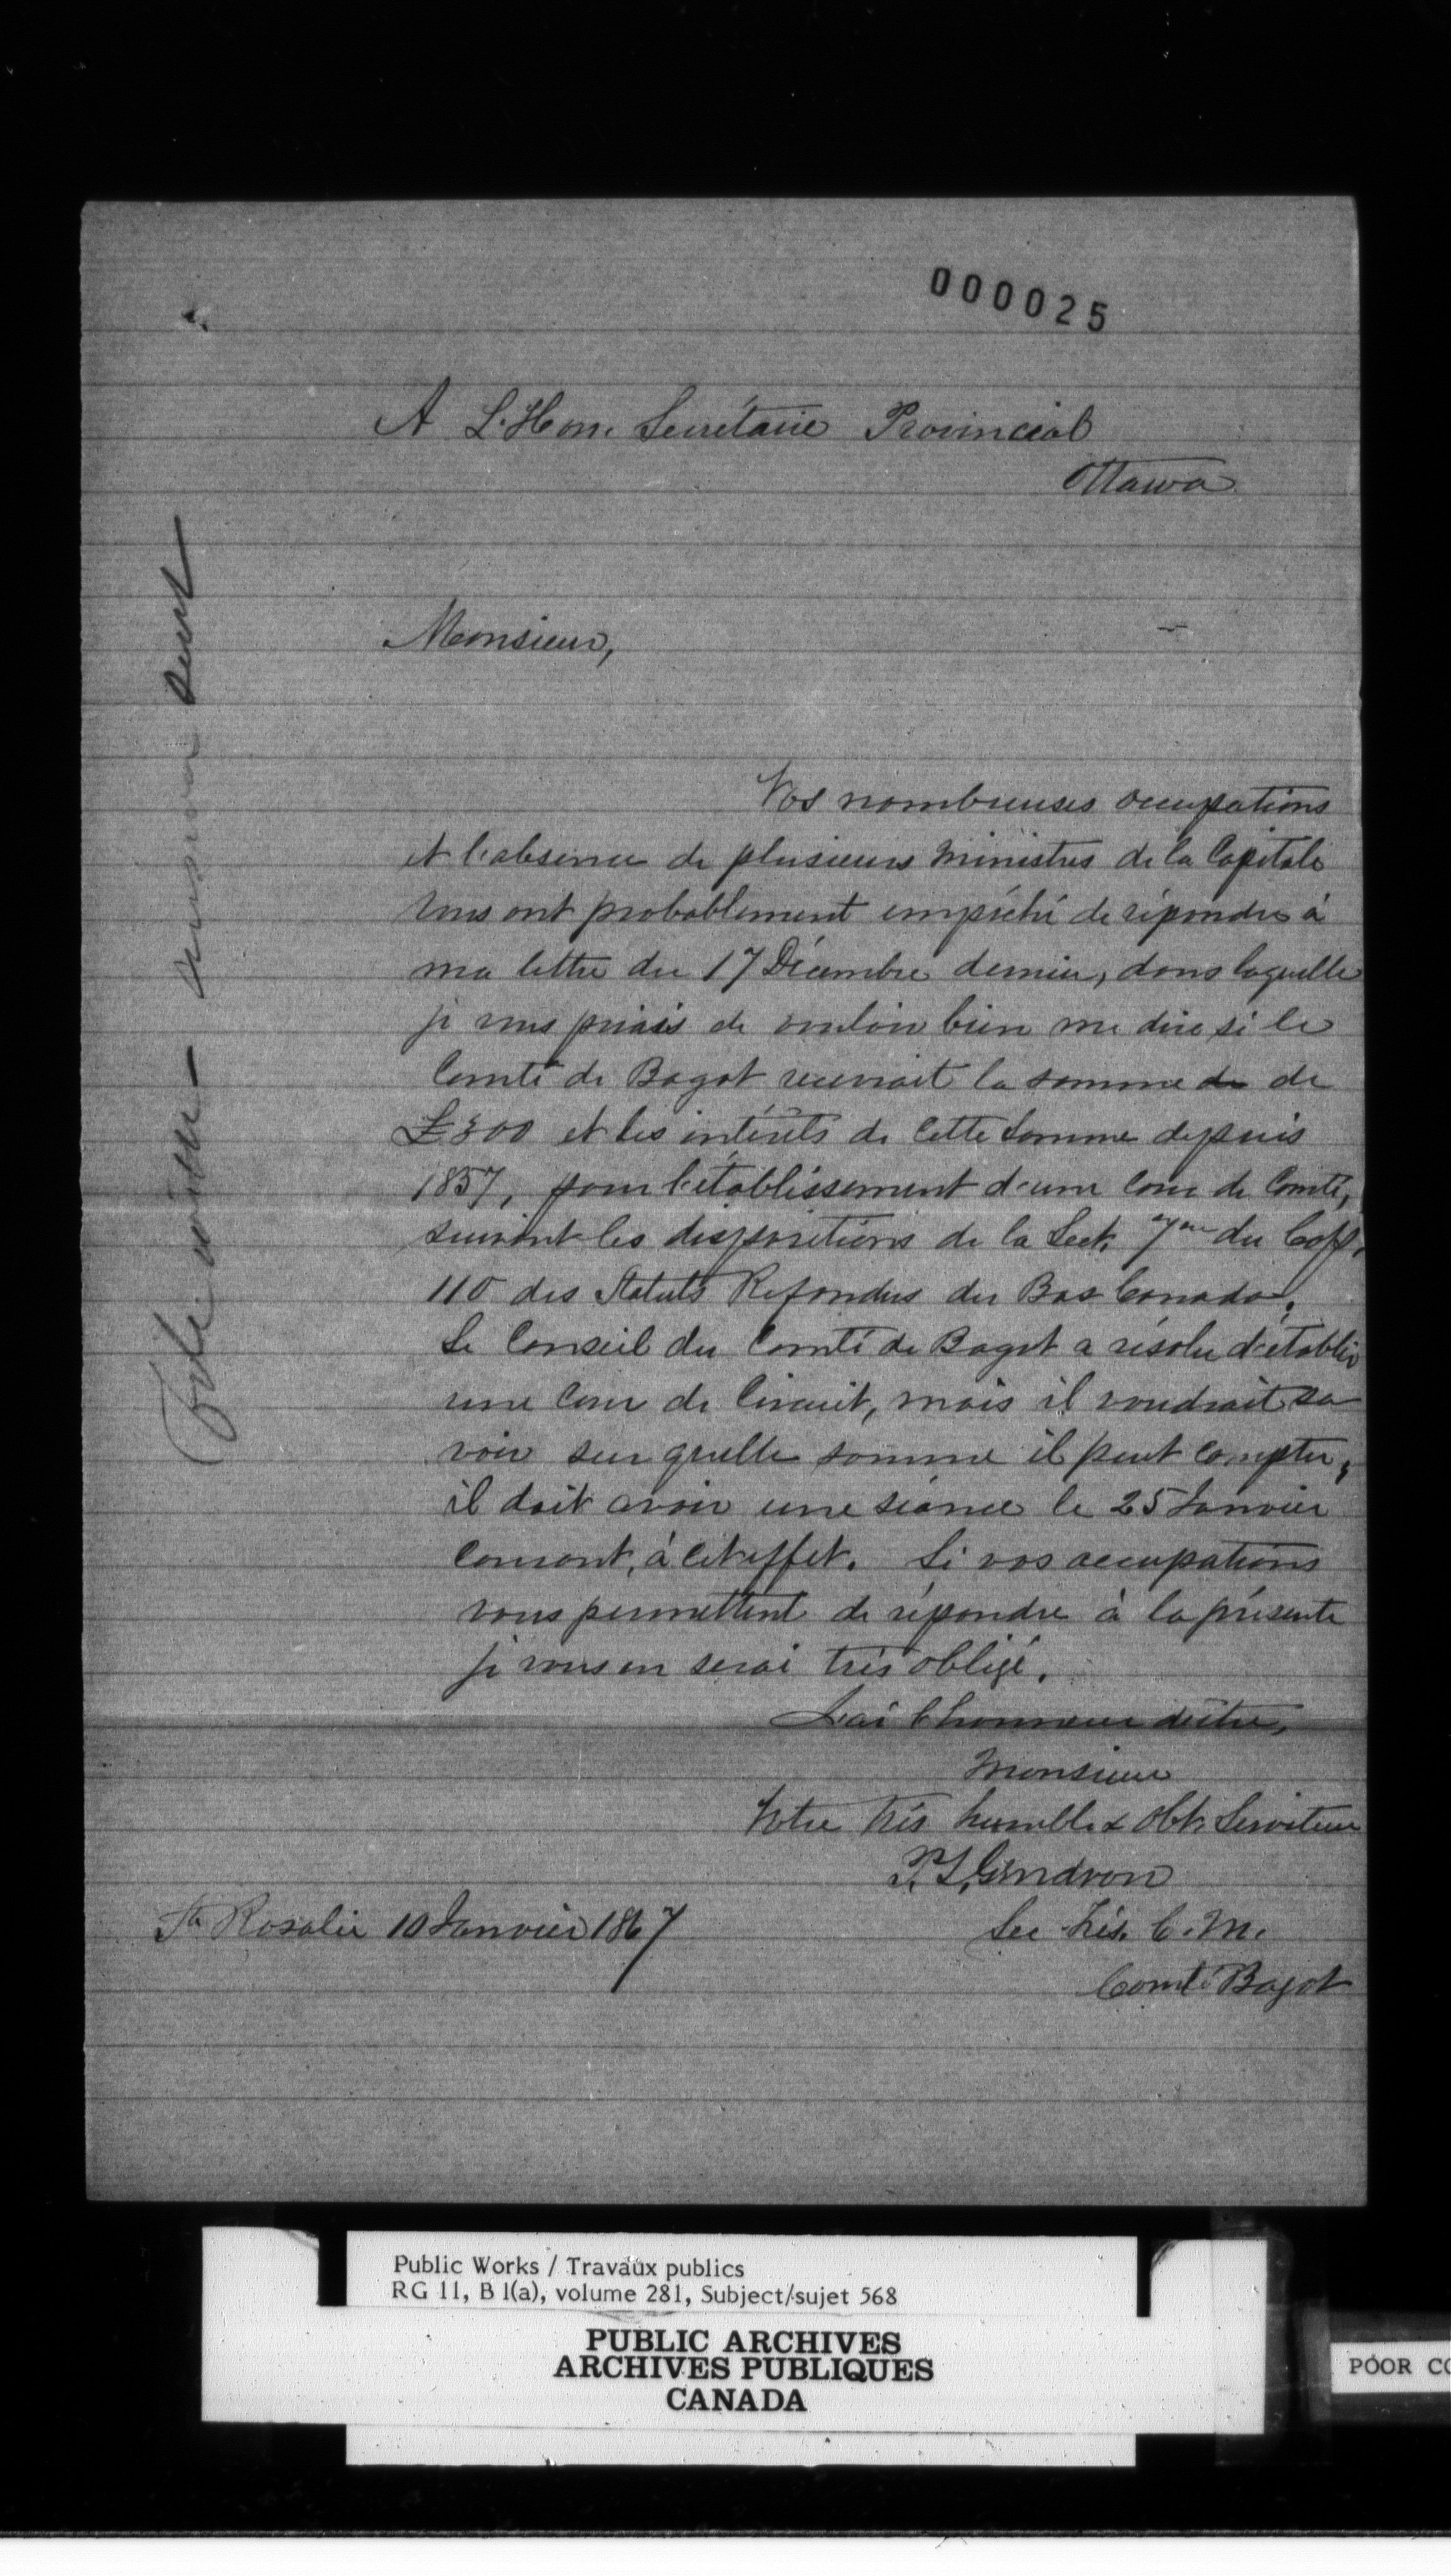 000025
A L'Hon. Secrétaire Provincial
Ottawa
Monsieur,
Vos nombreuses occupations
et l'absence de plusieurs ministres de la Capitale
vous ont probablement empêché de répondre à
ma lettre du 17 Décembre dernier, dans laquelle
je vous priais de vouloir bien me dire si le
Comté de Bagot recevrait la somme de de
£300 et les intérêts de cette somme depuis
1857, pour l'établissement d'une Cour de Comté,
suivant les dispositions de la Sect. 7me du Cap.
110 des Statuts Refondus du Bas Canada.
Le Conseil du Comté de Bagot a résolu d'établir
une Cour de Circuit, mais il voudrait sa
voir sur quelle somme il peut compter,
il doit avoir une séance le 25 Janvier
Courant, à cet effet. Si vos occupations
vous permettent de répondre à la présente
je vous en serai très obligé.
J'ai l'honneur d'être,
Monsieur
Votre très humble & Obt. Serviteur
P. S. Gendron
Sec Trés. C. M.
Comté Bagot
Ste Rosalie 10 Janvier 1867
To be
answer sent
Public Works / Travaux publics
RG 11, B 1(a), volume 281, Subject/sujet 568
PUBLIC ARCHIVES
ARCHIVES PUBLIQUES
CANADA
POOR CO